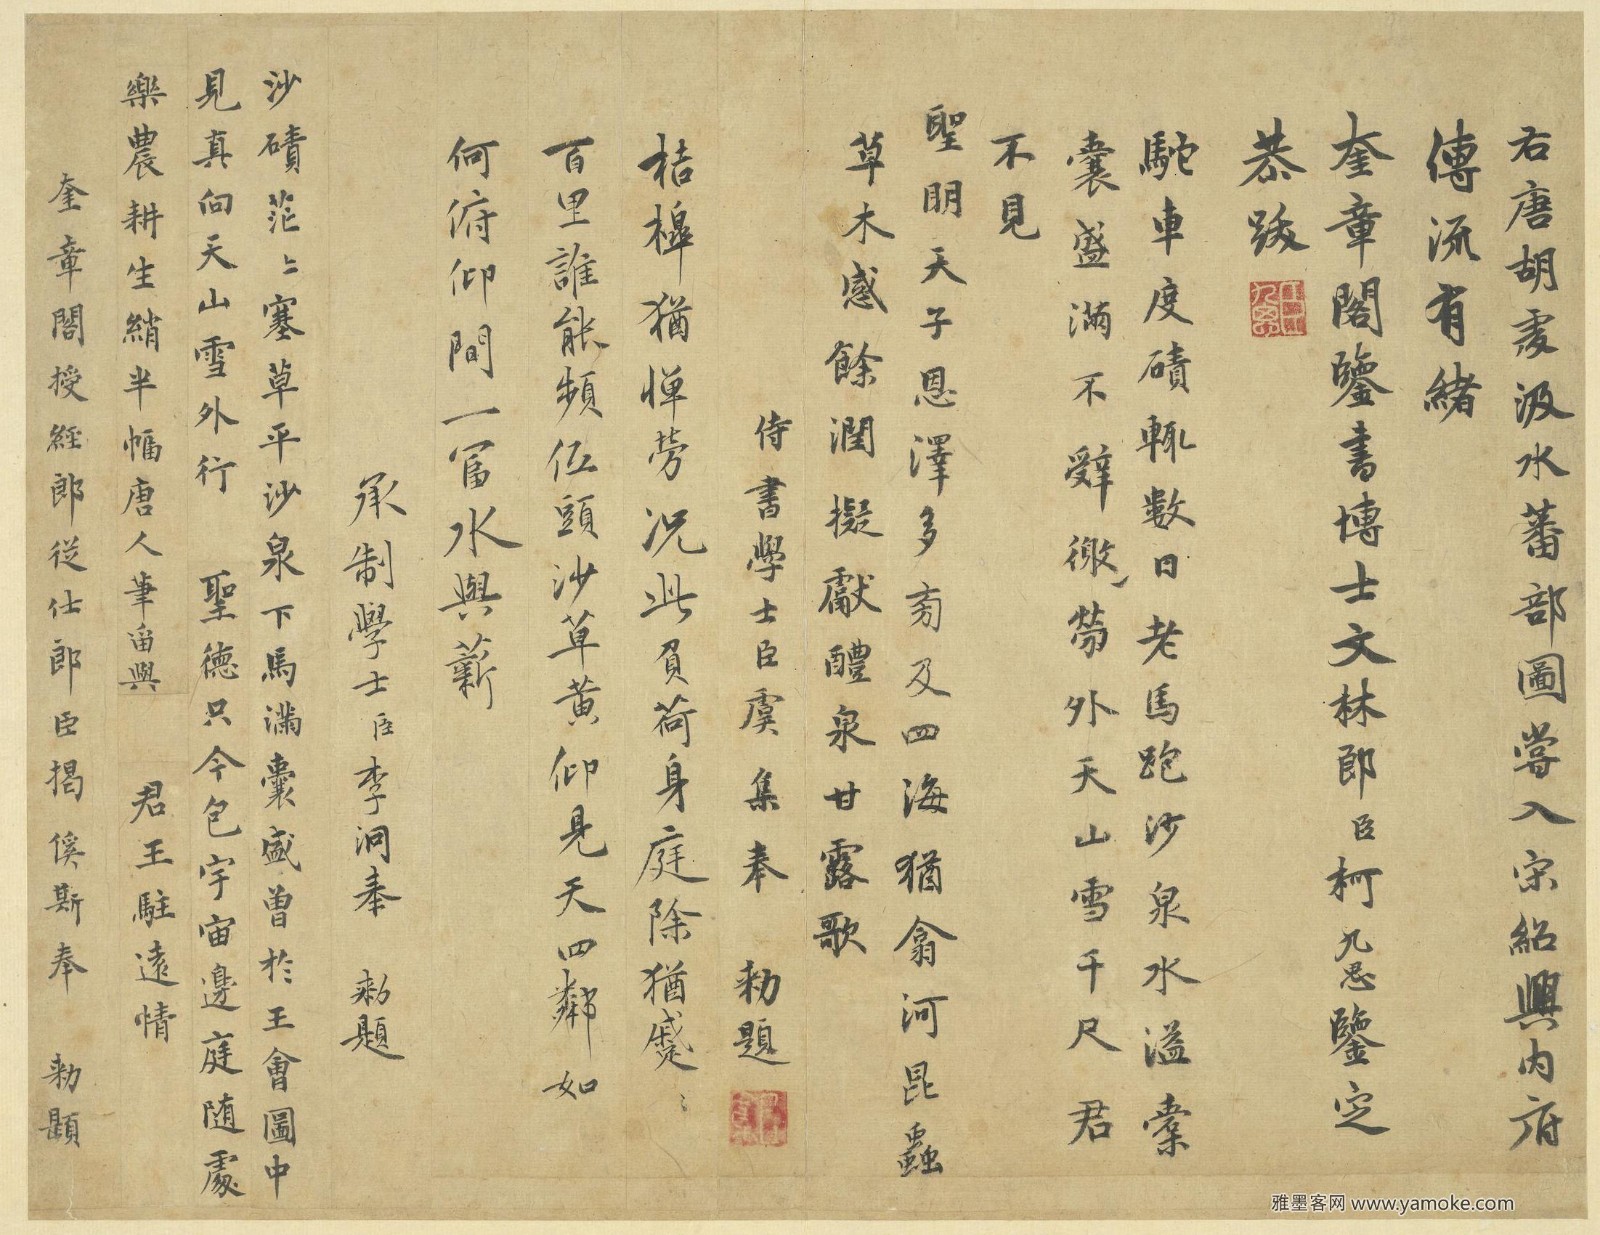 右唐胡虔汲水蕃部圖嘗入宋紹興內府
傳流有緒
奎章閣鑒書博士文林郎臣柯九思鑒定
恭跋
駝車度磧輒數日老馬跑沙泉水溢橐
囊盛滿不辭勞外天山雪千尺君
不見
聖明天子恩澤多旁及四海猶翕河昆蟲
草木感餘潤擬獻醴泉甘露歌
侍書學士臣虞集奉 勑題
桔槔猶憚勞況此負荷身庭除猶蹙〻
百里誰能頻低頭沙草黃仰見天四鄰如
何俯仰間一富水與薪
承制學士臣李洞奉 勑題
沙磧茫〻塞草平沙泉下馬滿囊盛曾於王會圖中
見真向天山雪外行 聖德只今包宇宙邊庭隨處
樂農耕生綃半幅唐人筆留與 君王駐遠情
奎章閣授經郎從仕郎臣揭傒斯奉 勑題
雅墨客网 www.yamoke.com